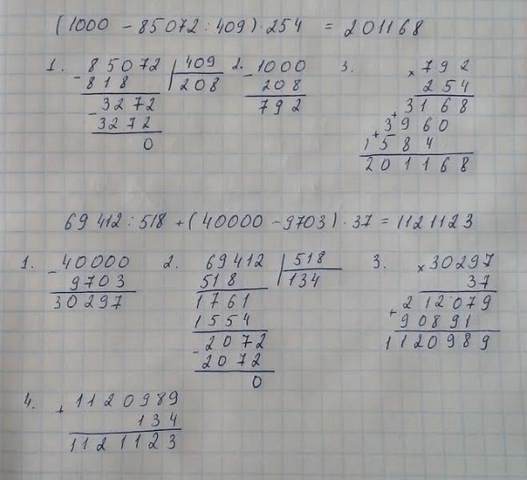 (1000 - 85072 : 409) · 254 = 201168
1. - 85072 | 409 2. - 1000 3. × 792
818 | 208 208 254
- 3272 792 3168
3272 + 3960
0 + 1584
201168
69412 : 518 + (40000 - 9703) · 37 = 1121123
1. - 40000 2. 69412 | 518 3. × 30297
9703 518 | 134 37
30297 1761 212079
1554 + 90891
- 2072 1120989
2072
0
4. + 1120989
134
1121123